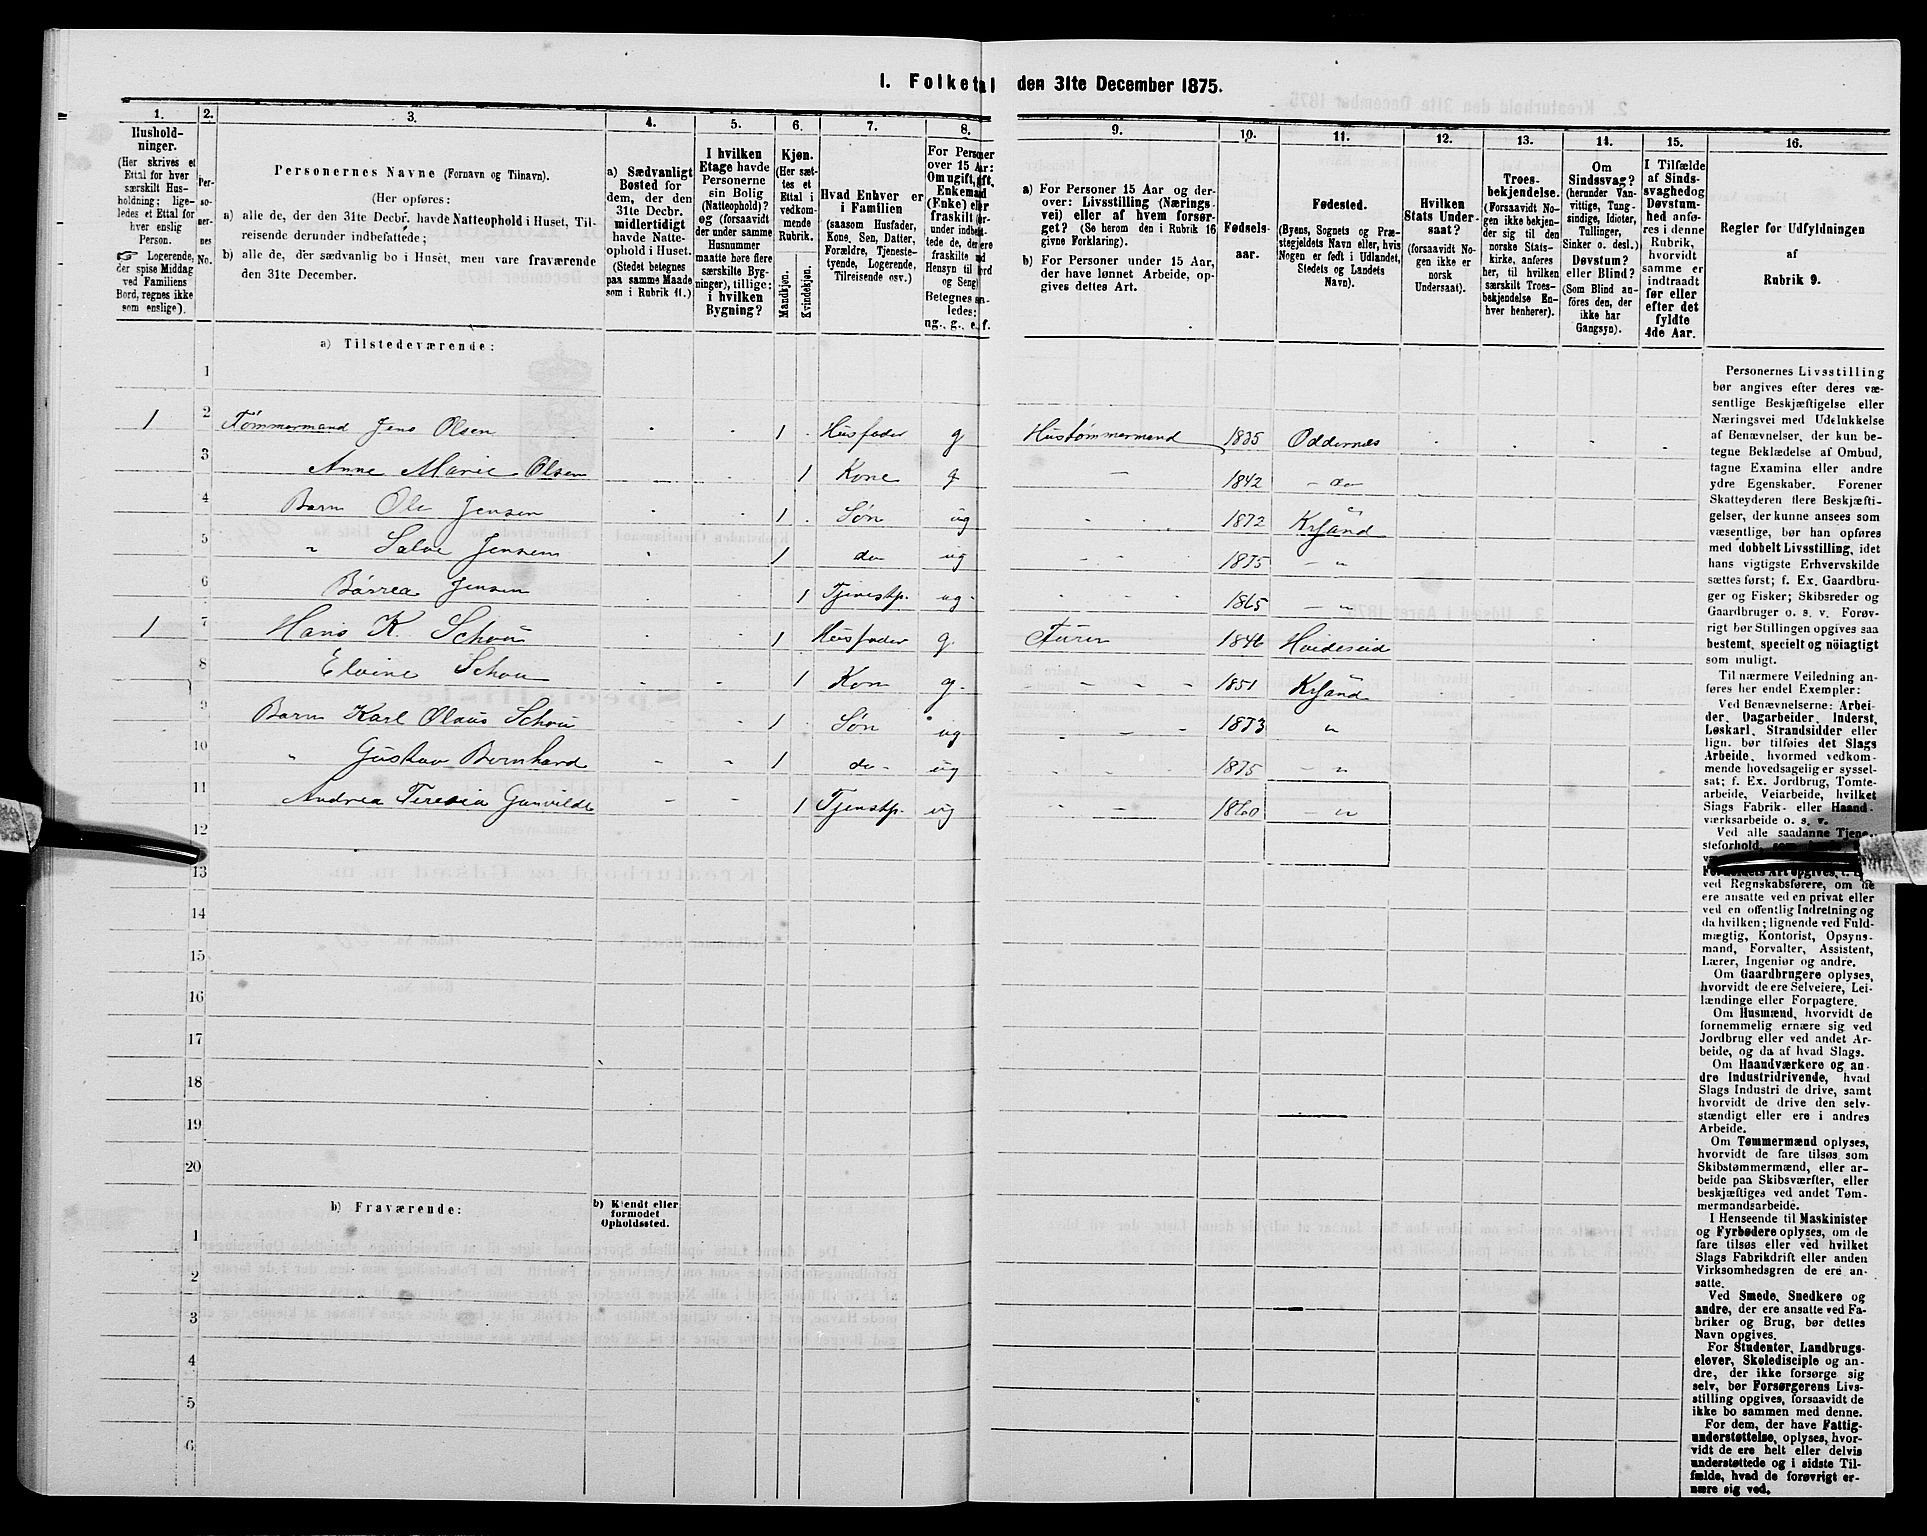 I. Folketal den 31te December 1875.
1. 2. 3. 4. 5. 6. 7. 8. 9. 10. 11. 12. 13. 14. 15. 16.
Hushold-
ninger.
(Her skrives et
Ettal for hver
særskilt Hus-
holdning; lige-
ledes et Ettal for
hver enslig
Person.
☞ Logerende,
der spise Middag
ved Familiens
Bord, regnes ikke
som enslige).
Per-
so-
ner-
nes
No.
Personernes Navne (Fornavn og Tilnavn).
(Her opføres:
a) alle de, der den 31te Decbr. havde Natteophold i Huset, Til-
reisende derunder indbefattede;
b) alle de, der sædvanlig bo i Huset, men vare fraværende
den 31te December.
a) Sædvanligt
Bosted for
dem, der den
31te Decbr.
midlertidigt
havde Natte-
ophold i Huset.
(Stedet betegnes
paa samme Maade
som i Rubrik 11.)
I hvilken
Etage havde
Personerne
sin Bolig
(Natteophold)?
og (forsaavidt
der under samme
Husnummer
maatte høre flere
særskilte Byg-
ninger), tillige:
i hvilken
Bygning?
Kjøn.
(Her sæt-
tes et
Ettal i
vedkom-
mende
Rubrik.
Mandkjøn.
Kvindekjøn.
Hvad Enhver er
i Familien
(saasom Husfader,
Kone, Søn, Datter,
Forældre, Tjeneste-
tyende, Logerende,
Tilreisende osv.)
For Personer
over 15 Aar:
Om ugift, gift,
Enkemand
(Enke) eller
fraskilt
Betegnes
ledes:
ug., g., e., f.
a) For Personer 15 Aar og der-
over: Livsstilling (Nærings-
vei) eller af hvem forsør-
get? (Se herom den i Rubrik 16
givne Forklaring).
b) For Personer under 15 Aar,
der have lønnet Arbeide, op-
gives dettes Art.
Fødsels-
aar.
Fødested.
(Byens, Sognets og Præ-
stegjeldets Navn eller, hvis
Nogen er født i Udlandet,
Stedets og Landets
Navn).
Hvilken
Stats Under-
saat?
(forsaavidt No-
gen ikke er
norsk
Undersaat).
Troes-
bekjendelse.
(Forsaavidt No-
gen ikke bekjen-
der sig til den
norske Stats-
kirke, anføres
her, til hvilken
særskilt Troes-
bekjendelse En-
hver henhører).
Om
Sindssvag?
(herunder Van-
vittige, Tung-
sindige, Idioter,
Tullinger,
Sinker o. desl.)
Døvstum?
eller Blind?
(Som Blind an-
føres den, der
ikke har
Gangsyn).
I Tilfælde
af Sinds-
svaghed og
Døvstum-
hed anfø-
res i denne
Rubrik,
hvorvidt
samme er
indtraadt
før eller
efter det
fyldte
4de Aar.
Regler for Udfyldningen
af
Rubrik 9.
a) Tilstedeværende:
1
1 2 Tømmermand Jens Olsen 1 Husfader g Hustømmermand 1835 Oddernes
3 Anne Marie Olsen 1 Kone g 1842 do
4 Barn Ole Jensen 1 Søn ug 1872 Krsand
5 " Salve Jensen 1 do ug 1875 "
6 Jensen 1 Tjenestp. ug 1865 "
1 7 Hans K. Schou 1 Husfader g. 1846 Hvideseid
8 Elvine Schou 1 Kone g. 1851 Krsand
9 Barn Karl Olaus Schou 1 Søn ug 1873 "
10 " Gustav Bernhard 1 do ug 1875 "
11 Andrea Teresia Gunvilde 1 Tjenstp. ug 1860 "
12
13
14
15
16
17
18
19
20
b) Fraværende:
b) Kjendt eller
formodet
Opholdssted.
1
2
3
4
5
6
Personernes Livsstilling
bør angives efter deres væ-
sentlige Beskjæftigelse eller
Næringsvei med Udelukkelse
af Benævnelser, der kun be-
tegne Beklædelse af Ombud,
tagne Examina eller andre
ydre Egenskaber. Forener
Skatteyderen flere Beskjæfti-
gelser, der kunne ansees som
væsentlige, bør han opføres
med dobbelt Livsstilling, idet
hans vigtigste Erhvervskilde
sættes først; f. Ex. Gaardbru-
ger og Fisker; Skibsreder og
Gaardbruger o. s. v. Forøv-
rigt bør Stillingen opgives saa
bestemt, specielt og nöiagtigt
som muligt.
Til nærmere Veiledning an-
føres her endel Exempler:
Ved Benævnelserne: Arbei-
der, Dagarbeider, Inderst,
Løskarl, Strandsidder eller
lign. bør tilføies det Slags
Arbeide, hvormed vedkom-
mende hovedsagelig er syssel-
sat; f. Ex. Jordbrug, Tomte-
arbeide, Veiarbeide, hvilket
Slags Fabrik- eller Haand-
værksarbeide o. s. v.
Ved alle saadanne Tjene-
steforhold,
Forholdets Art opgives,
ved Regnskabsførere, om de
ere ansatte ved en privat eller
ved en offentlig Indretning og
da hvilken; lignende ved Fuld-
mægtig, Kontorist, Opsyns-
mand, Forvalter, Assistent,
Lærer, Ingeniør og andre.
Om Gaardbrugere oplyses,
hvorvidt de ere Selveiere, Lei-
lændinge eller Forpagtere.
Om Husmænd, hvorvidt de
fornemmelig ernære sig ved
Jordbrug eller ved andet Ar-
beide, og da af hvad Slags.
Om Haandværkere og an-
dre Industridrivende, hvad
Slags Industri de drive, samt
hvorvidt de drive den selv-
stændigt eller ere i andres
Arbeide.
Om Tømmermænd oplyses,
hvorvidt de fare tilsøs som
Skibstømmermænd, eller ar-
beide paa Skibsværfter, eller
beskjæftiges ved andet Tøm-
mermandsarbeide.
I Henseende til Maskinister
og Fyrbødere oplyses, om de
fare tilsøs eller ved hvilket
Slags Fabrikdrift eller anden
Virksomhedsgren de ere an-
satte.
Ved Smede, Snedkere og
andre, der ere ansatte ved Fa-
briker og Brug, bør dettes
Navn opgives.
For Studenter, Landbrugs-
elever, Skoledisciple og an-
dre, der ikke forsørge sig
selv, bør Forsørgerens Livs-
stilling opgives, forsaavidt de
ikke bo sammen med denne.
For dem, der have Fattig-
understøttelse, oplyses, hvor-
vidt de ere helt eller delvis
understøttede og i sidste Til-
fælde, hvad de forøvrigt er-
nære sig ved.